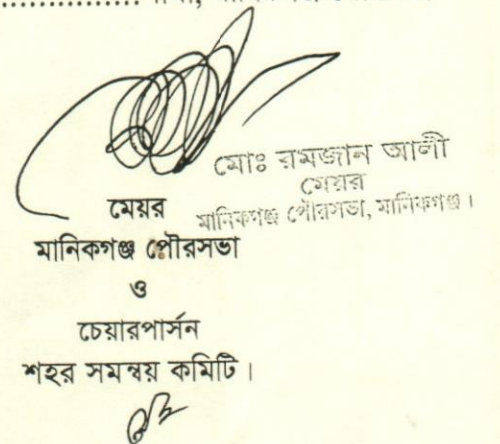 মোঃ রমজান আলী
মেয়র
মানিকগঞ্জ পৌরসভা, মানিকগঞ্জ।
মেয়র
মানিকগঞ্জ পৌরসভা
ও
চেয়ারপার্সন
শহর সমন্বয় কমিটি।